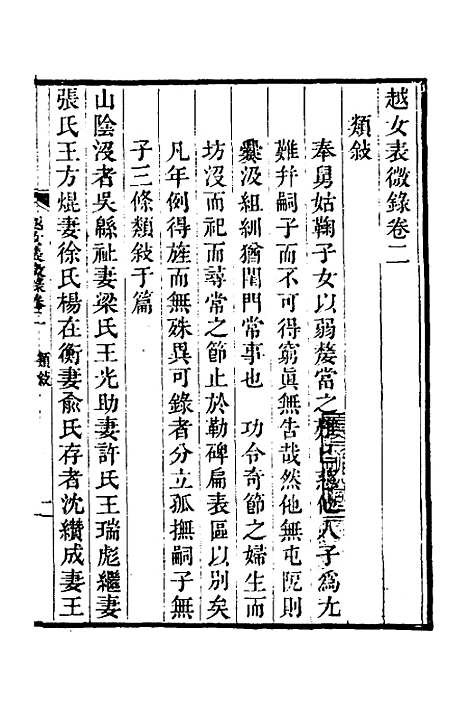 越女表微錄卷二
類敍
奉舅姑鞠子女以弱嫠當之難已慈他人子爲尤
難并嗣子而不可得窮眞無告哉然他無屯阨則
爨汲組紃猶閨門常事也　功令奇節之婦生而
坊沒而祀而尋常之節止於勒碑扁表區以別矣
凡年例得旌而無殊異可錄者分立孤撫嗣子無
子三條類敍于篇
山陰沒者吳緜祉妻梁氏王光助妻許氏王瑞彪繼妻
張氏王方焜妻徐氏楊在衡妻兪氏存者沈纘成妻王
越女表微錄卷二
類敍